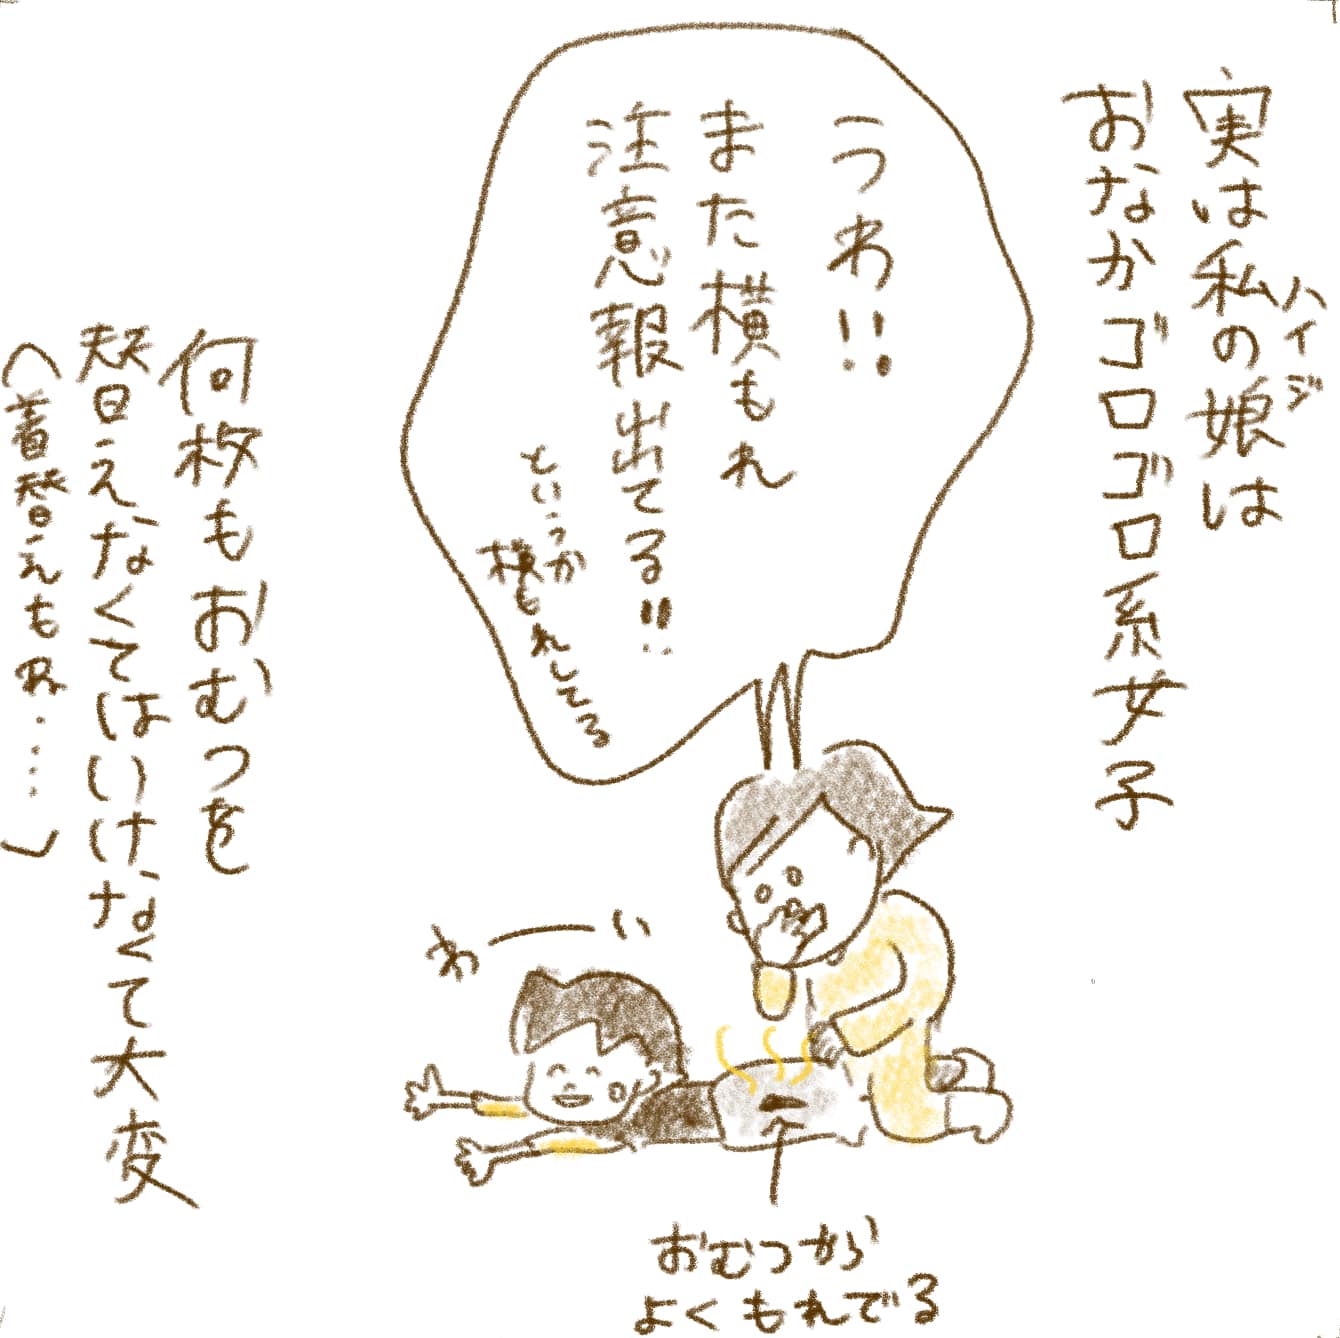 実は私の娘は
ハイジ
おなかゴロゴロ系女子
うわ!!
また横もれ
注意報出てる!!
というか
横もれしてる
わーい
おむつから
よくもれでる
何枚もおむつを
替えなくてはいけなくて大変
(着替えもね・・・・・)